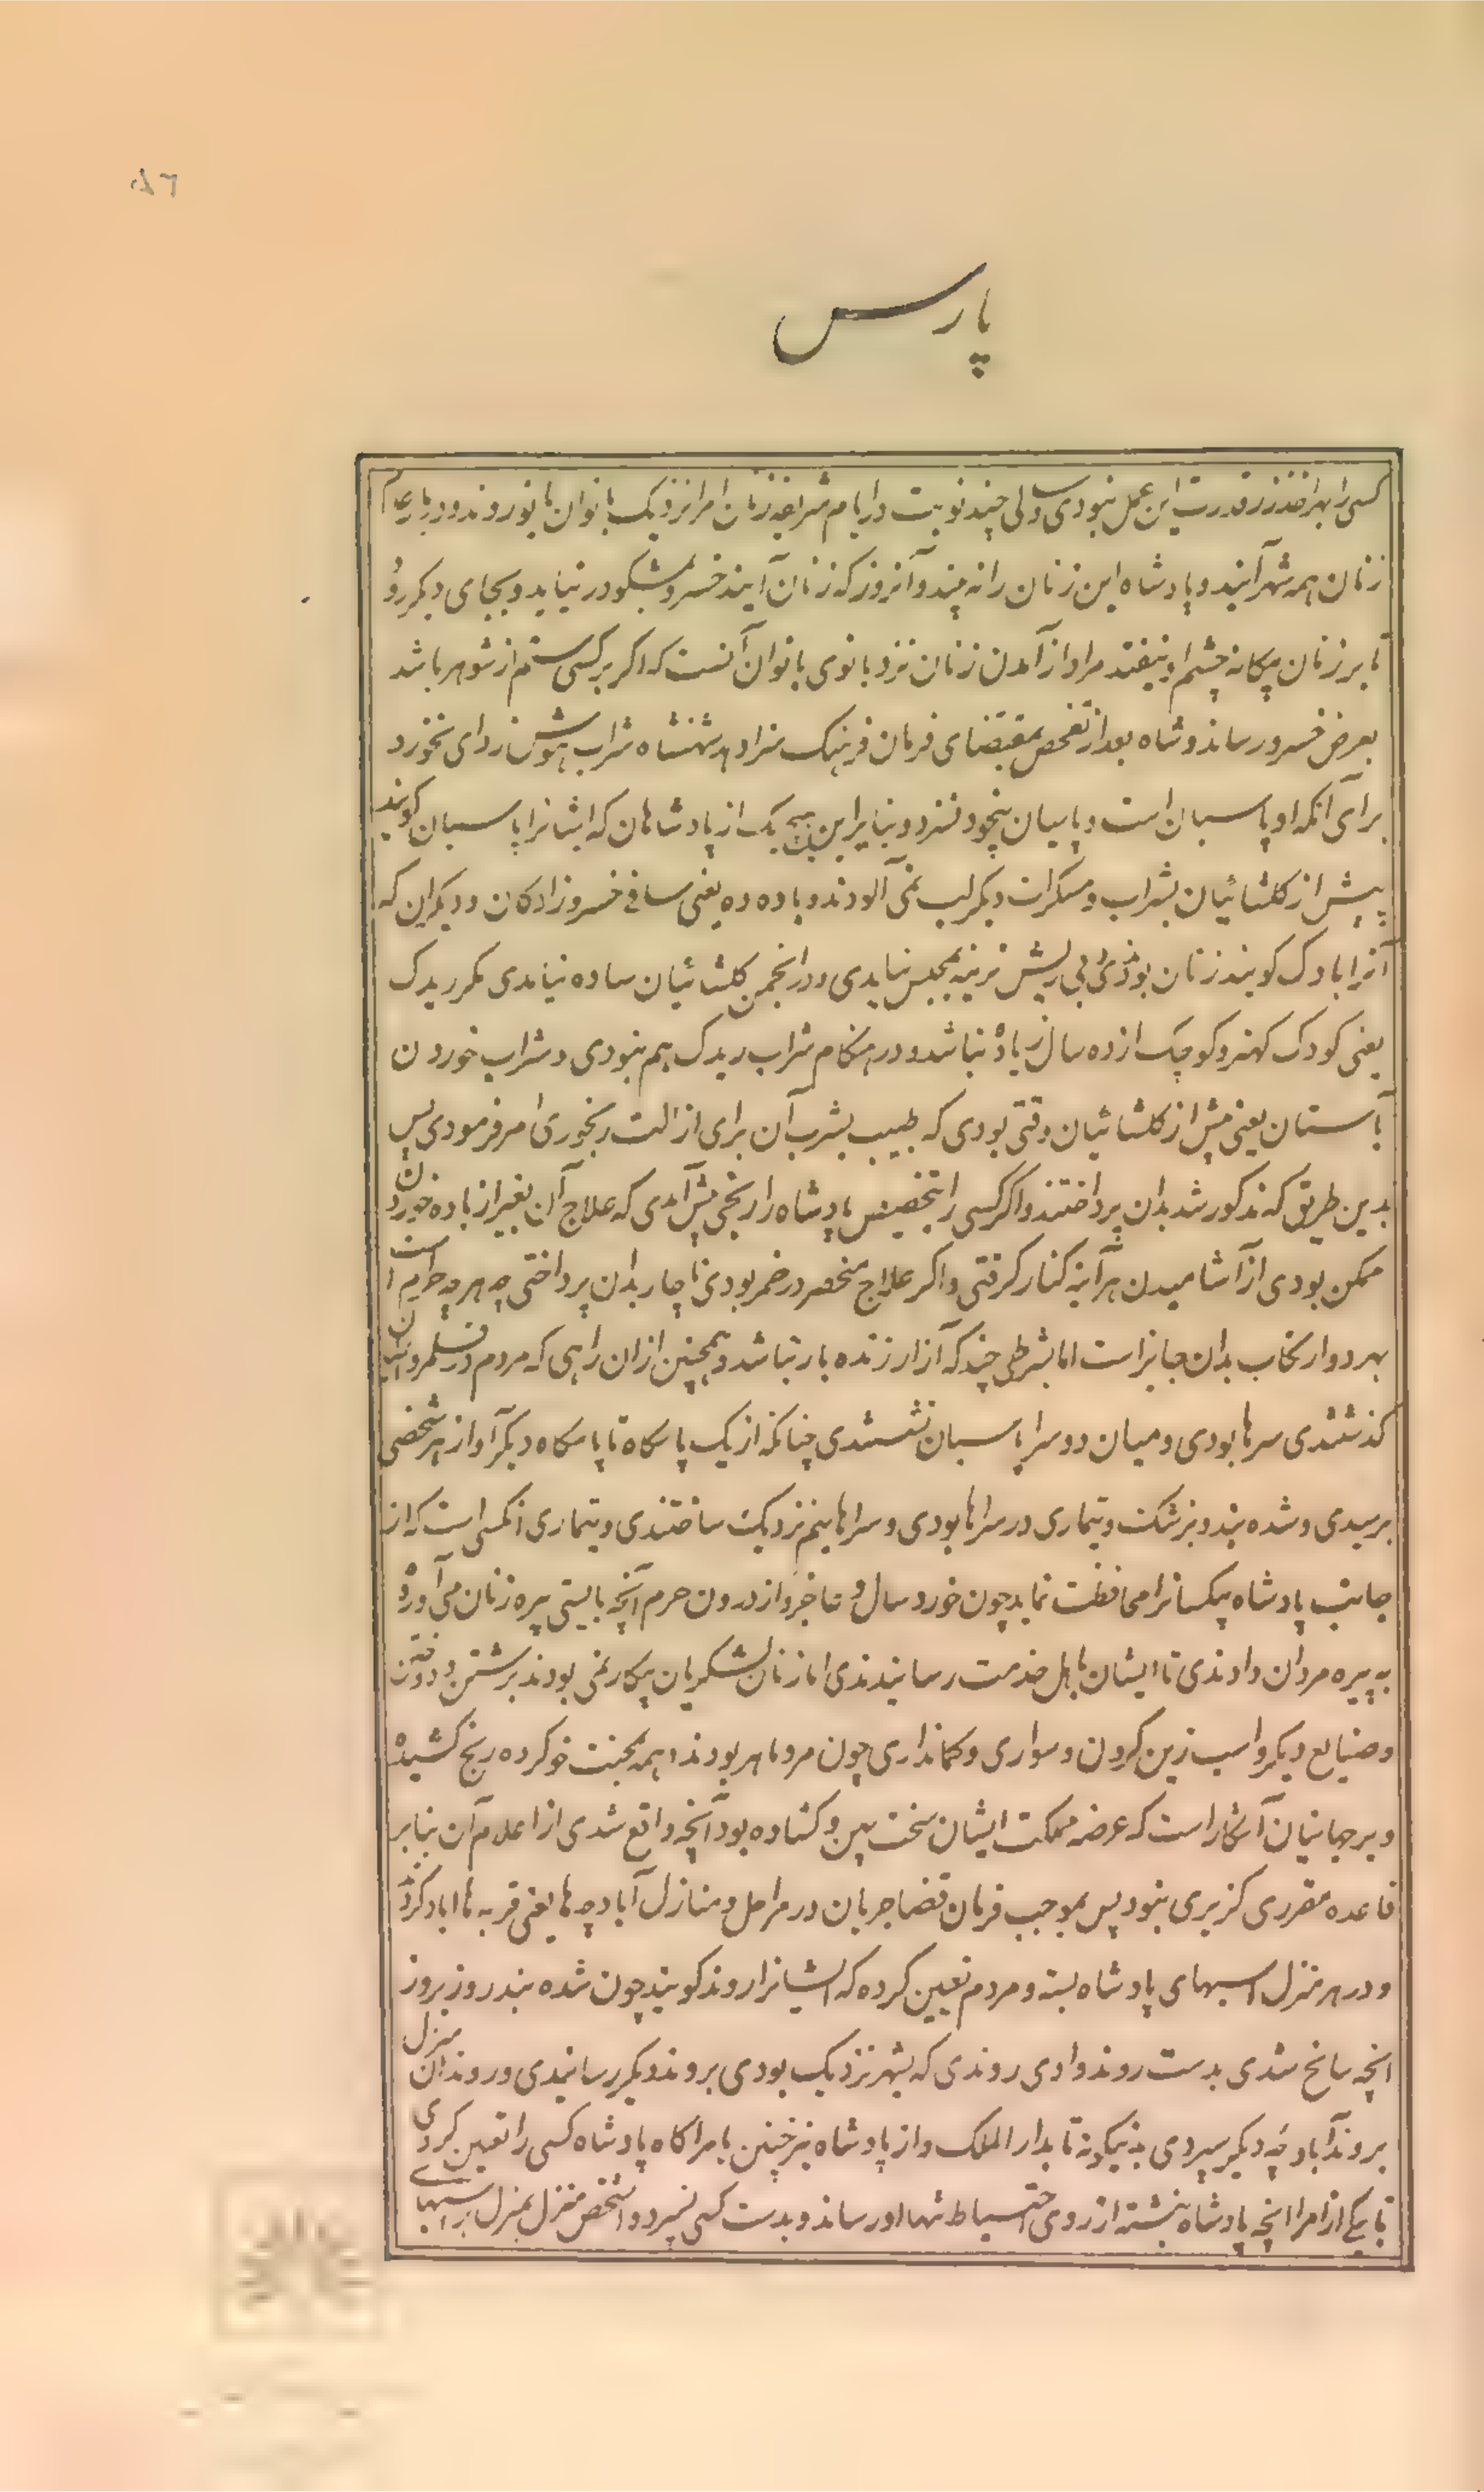 ۸۶
پارس
کسی را بهر اخذ زر قدرت این عمل نبودی و سالی چند نوبت در ایام شریفه زنان امرا نزدیک بانوان بانو روند و در بار عام
زنان همه شهر آیند و پادشاه این زنان را نه بیند و آنروز که زنان آیند خسرو بمشکو در نیاید و بجای دیکر رود
تا بر زنان بیکانه چشم او نیفتد مراد از آمدن زنان نزد بانوی بانوان آنست که اکر بر کسی ستم از شوهر باشد
بعرض خسرو رساند و شاه بعد از تفحص بمقتضای فرمان فرهنک سزا دهد شهنشاه شراب هوش زدای نخورد
برای آنکه او پاسبان است و پاسبان بیخود نسزد و بنابراین هیچ یک از پادشاهان که ایشانرا پاسبان کویند
پیش از کلشائیان بشراب و مسکرات دیکر لب نمی آلودند و باده ده یعنی ساقی خسرو زادکان و دیکران که
آنرا بادک کویند زنان بودندی بی ریش نرینه بمجلس نیایدی و در انجمن کلشائیان ساده نیامدی مکر ریدک
یعنی کودک کهتر و کوچک از ده سال زیاد نباشد و در هنکام شراب ریدک هم نبودی و شراب خوردن
باستان یعنی پیش از کلشائیان وقتی بودی که طبیب بشرب آن برای ازالت رنجوری امر فرمودی پس
بدین طریق که مذکور شد بدان پرداختند و اکر کسی را بتخصیص پادشاه را رنجی پیش آمدی که علاج آن بغیر از باده خوردن
ممکن بودی از آشامیدن هر آینه کنار کرفتی و اکر علاج منحصر در خمر بودی ناچار بدان پرداختی چه هر چه حرام است
بهر دو ارتکاب بدان جایز است اما بشرطی چند که آزار زنده بار نباشد و همچنین ازان راهی که مردم در قلمرو ایشان
کذشتندی سرها بودی و میان دو سرا پاسبان نشستندی چنانکه از یک پاسکاه تا پاسکاه دیکر آواز هر شخصی
برسیدی و شده بند و بزشک و تیماری در سراها بودی و سراها بنم نزدیک ساختندی و تیماری انکسی است که از
جانب پادشاه بیکسانرا محافظت نماید چون خورد سال و عاجز و از درون حرم آنچه بایستی پیره زنان می آورد
به پیره مردان دادندی تا ایشان باهل خدمت رسانیدندی اما زنان لشکریان بیکار نمی بودند برشتن و دوختن
و صنایع دیکر و اسب زین کردن و سواری و کمانداری چون مرد ماهر بودند همه بمحنت خو کرده رنج کشیده
و بر جهانیان آشکار است که عرصه مملکت ایشان سخت پهن و کشاده بود آنچه واقع شدی از اعلام آن بنا بر
قاعده مقرری کزیری نبود پس بموجب فرمان قضا جریان در مراحل و منازل آبادچه ها یعنی قریه ها اباد کردند
و در هر منزل اسبهای پادشاه بسته و مردم تعیین کرده که ایشانرا روند کویند چون شده بند روز بروز
انچه سانح شدی بدست روند دادی روندی که بشهر نزدیک بودی بروند دیکر رسانیدی و روند آن منزل
بروند آبادچه دیکر سپردی بدینکونه تا بدار الملک و از پادشاه نیز چنین بامرا کاه پادشاه کسی را تعیین کردی
تا یکی از امرا انچه پادشاه بنشته از روی احتیاط تنها اورساند و بدست کسی نسپرد و آن شخص منزل بمنزل بر اسبهای